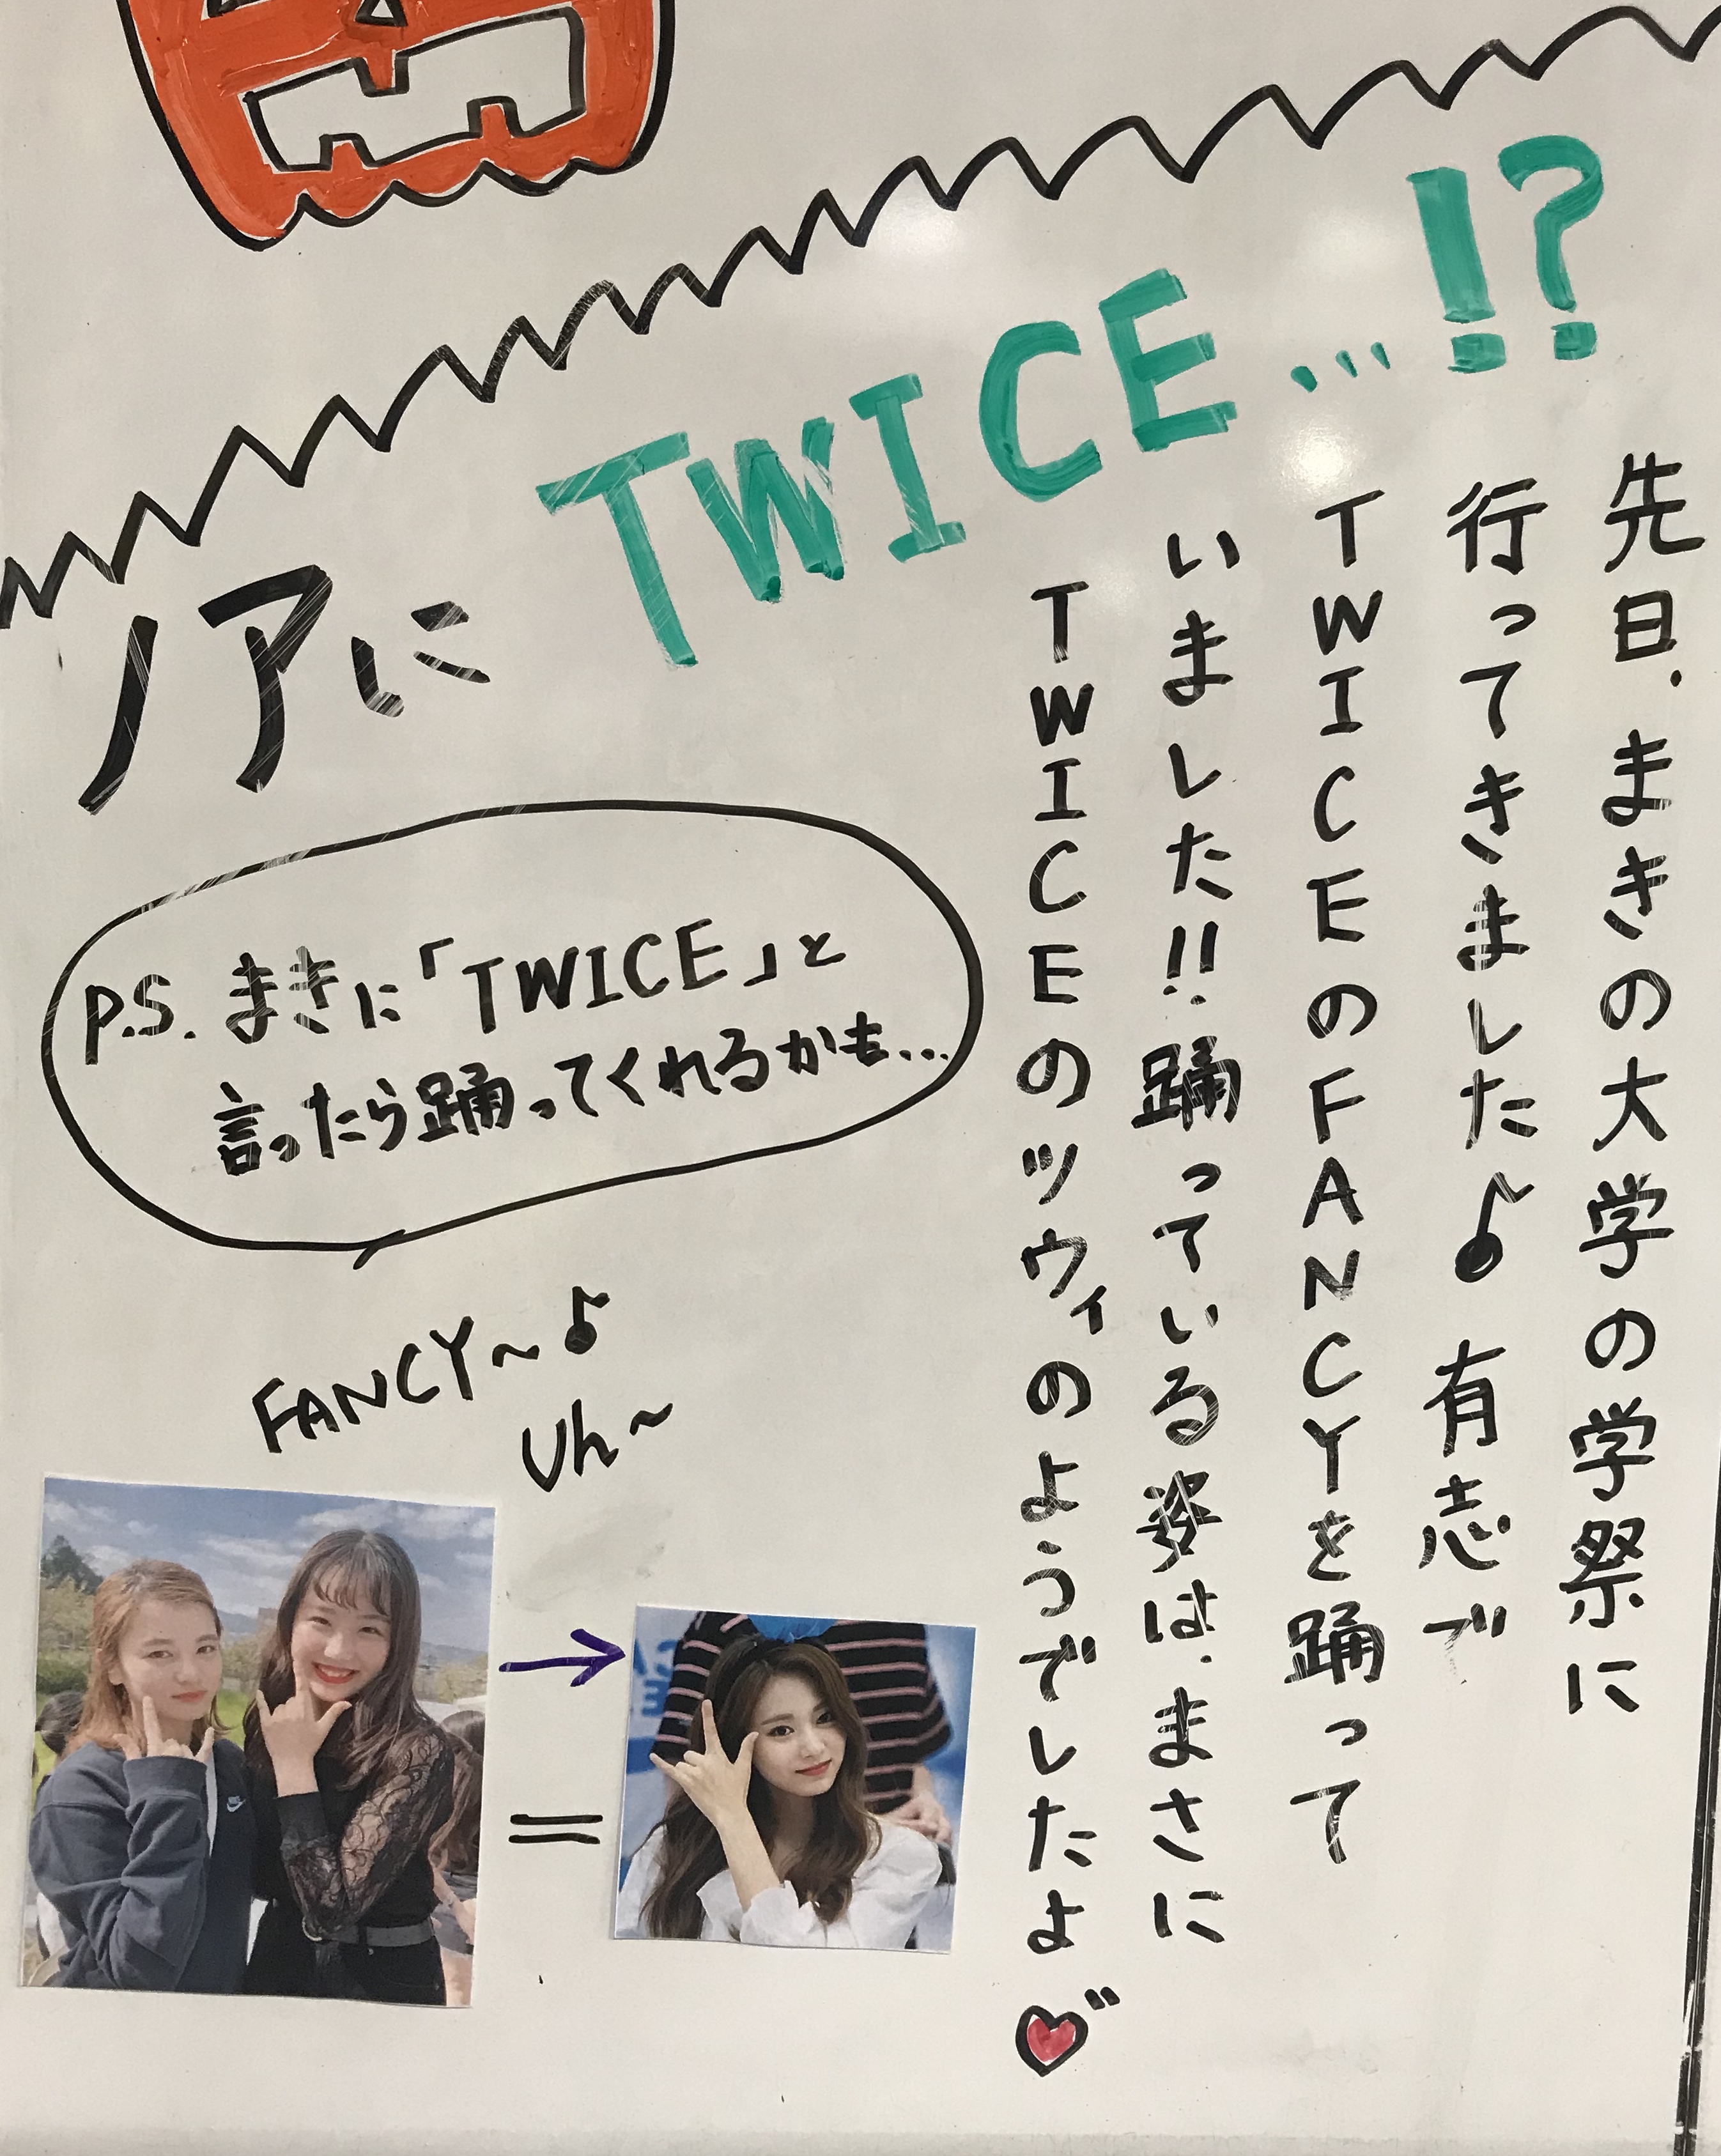 ノアにTWICE…!?
先日、まきの大学の学祭に
行ってきました♪有志で
TWICEのFANCYを踊って
いました!!踊っている姿は、まさに
TWICEのツウィのようでしたよ♥
P.S. まきに「TWICE」と
言ったら踊ってくれるかも…
FANCY〜♪
Uh〜
→
=